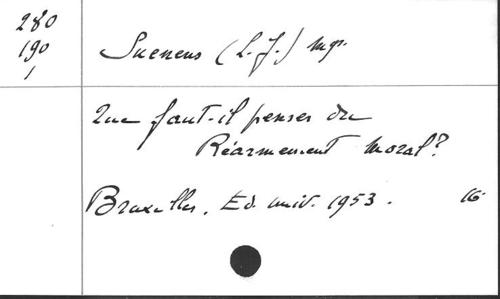 280
190
1
Suenens (L.J.) Mgr.
Que faut-il penser du
Réarmement Moral?
Bruxelles. Ed. univ. 1953. 16